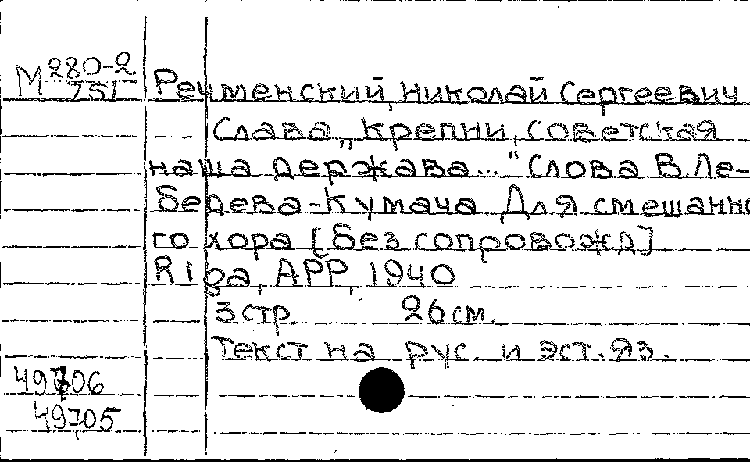 М 280-2
751
Речменский, Николай Сергеевич
Слава „Крепни, советская
наша держава..." Слова В. Ле-
бедева-Кумача Для смешанно
го хора [без сопровожд]
Riga, APP, 1940
3 стр. 26 см.
Текст на рус. и эст. яз.
49706
49705